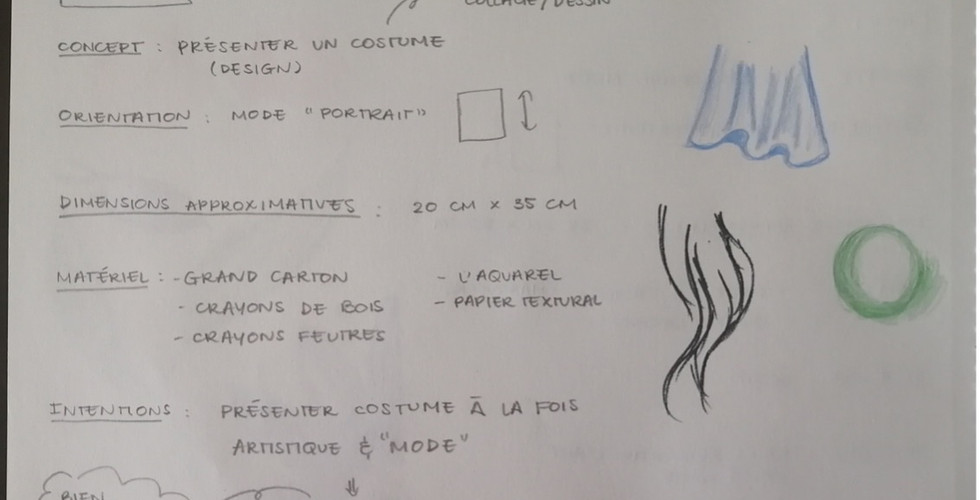 COLLAGE/DESSIN
CONCEPT : PRÉSENTER UN COSTUME
(DESIGN)
ORIENTATION : MODE "PORTRAIT"
DIMENSIONS APPROXIMATIVES : 20 CM X 35 CM
MATÉRIEL : - GRAND CARTON - L'AQUAREL
- CRAYONS DE BOIS - PAPIER TEXTURAL
- CRAYONS FEUTRES
INTENTIONS : PRÉSENTER COSTUME À LA FOIS
ARTISTIQUE & "MODE"
BIEN